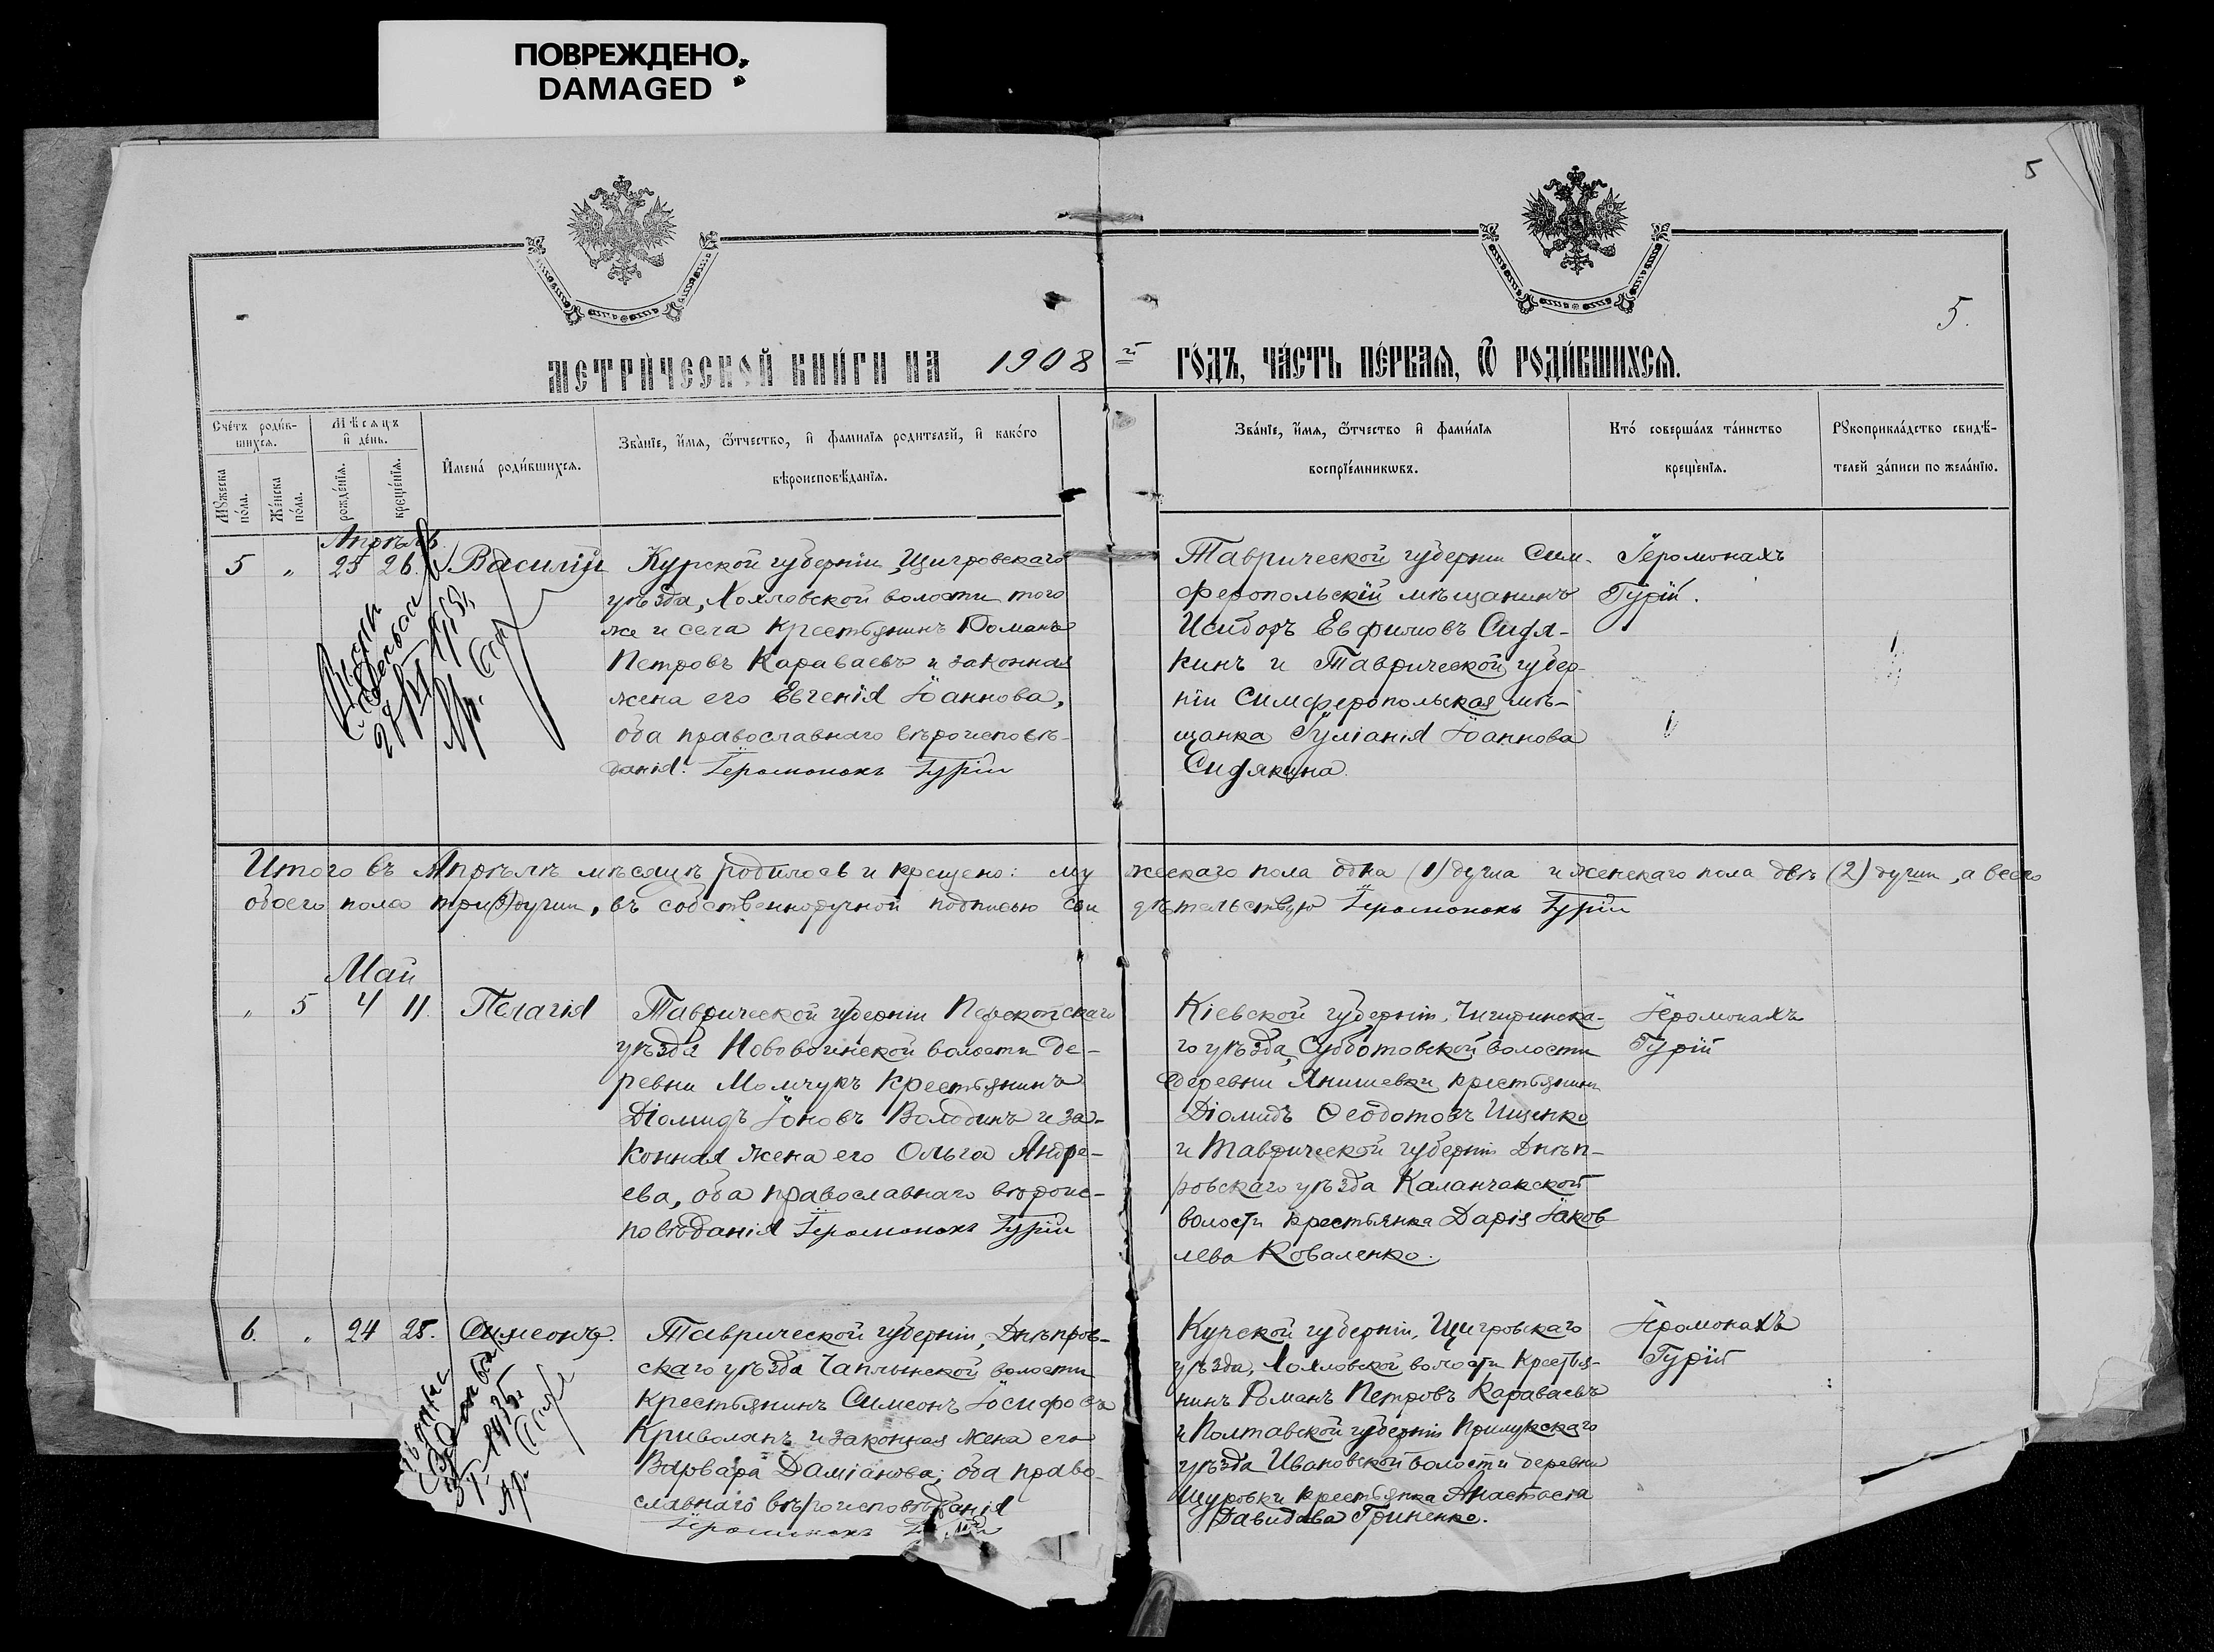 ПОВРЕЖДЕНО
DAMAGED
5
5.
МЕТРИ́ЧЕСКОЙ КНИ́ГИ НА 1908 й ГО́ДЪ, ЧА́СТЬ ПЕ́РВАѦ, Ѿ РОДИ́ВШИХСѦ.
Сче́тъ роди́в-
шихсѧ.
Мѣсѧцъ
и де́нь.
Мꙋжеска по́ла.
Же́нска по́ла.
рожде́нїѧ.
креще́нїѧ.
Имена́ роди́вшихсѧ.
Зва́нїе, и́мѧ, ѻ́тчество, и фамилїѧ родителей, и како́го
вѣроисповѣ́данїѧ.
Зва́нїе, и́мѧ, ѻ́тчество и фами́лїѧ
воспрїе́мникѡвъ.
Кто́ соверша́лъ та́инство
креще́нїѧ.
Рꙋкоприкла́дство свидѣ́-
телей за́писи по жела́нїю.
Апрѣль
5 „ 25 26. Василій
Курской губерніи, Щигровскаго
уѣзда, Хохловской волости того
же и села крестьянинъ Романъ
Петровъ Караваевъ и законная
жена его Евгенія Іоаннова,
оба православнаго вѣроисповѣ-
данія. Іеромонахъ Гурій
Таврической губерніи Сим-
феропольскій мѣщанинъ
Исидоръ Евфимовъ Сидя-
кинъ и Таврической губер-
ніи Симферопольская мѣ-
щанка Іуліанія Іоаннова
Сидякина.
Іеромонахъ
Гурій.
Итого въ Апрѣлѣ мѣсяцѣ родилось и крещено: мужескаго пола одна (1) душа и женскаго пола двѣ (2) души, а всего
обоего пола три (3) души, въ собственноручной подписью свидѣтельствую Іеромонахъ Гурій
Май
„ 5 4 11. Пелагія
Таврической губерніи Перекопскаго
уѣзда Нововогинской волости де-
ревни Момчукъ крестьянинъ
Діомидъ Іоновъ Володинъ и за-
конная жена его Ольга Андре-
ева, оба православнаго вѣроис-
повѣданія Іеромонахъ Гурій
Кіевской губерніи, Чигиринска-
го уѣзда, Субботовской волости
деревни Янишевки крестьянинъ
Діомидъ Ѳеодотовъ Ищенко
и Таврической губерніи Днѣп-
ровскаго уѣзда Каланчакской
волости крестьянка Дарія Іаков
лева Коваленко.
Іеромонахъ
Гурій
6. „ 24 25. Симеонъ.
Таврической губерніи, Днѣпров-
скаго уѣзда Чаплынской волости
крестьянинъ Симеонъ Іосифовъ
Криволапъ и законная жена его
Варвара Даміанова, оба право-
славнаго вѣроисповѣданія
Іеромонахъ
Курской губерніи, Щигровскаго
уѣзда, Хохловской волости крестья-
нинъ Романъ Петровъ Караваевъ
и Полтавской губерніи Прилукскаго
уѣзда Ивановской волости деревни
Щуровки крестьянка Анастасія
Давидова Гриненко.
Іеромонахъ
Гурій